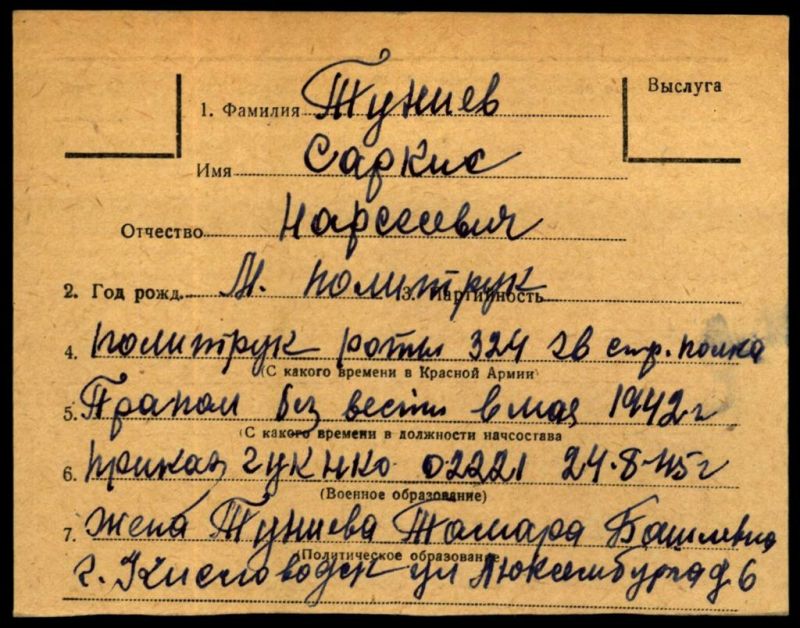 Выслуга
1. Фамилия Туниев
Имя Саркис
Отчество Нарсесович
2. Год рожд. М. политрук 3. Партийность
4. политрук роты 324 гв стр. полка
(С какого времени в Красной Армии)
5. Пропал без вести в мае 1942 г
(С какого времени в должности начсостава
6. приказ ГУК НКО 02221 24.8.45 г
(Военное образование)
7. жена Туниева Тамара
(Политическое образование
г. Кисловодск ул Люксембург д 6